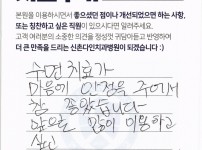 본원을 이용하시면서 좋으셨던 점이나 개선되었으면 하는 사항,
또는 칭찬하고 싶은 직원이 있으시다면 말씀해주세요.
고객 여러분의 소중한 의견을 정성껏 귀담아듣고 반영하여
더 큰 만족을 드리는 신촌다인치과병원이 되겠습니다 :)
수면치료가
마음이 안정을 주어서
참 좋았습니다
앞으로 많이 이용하고
싶